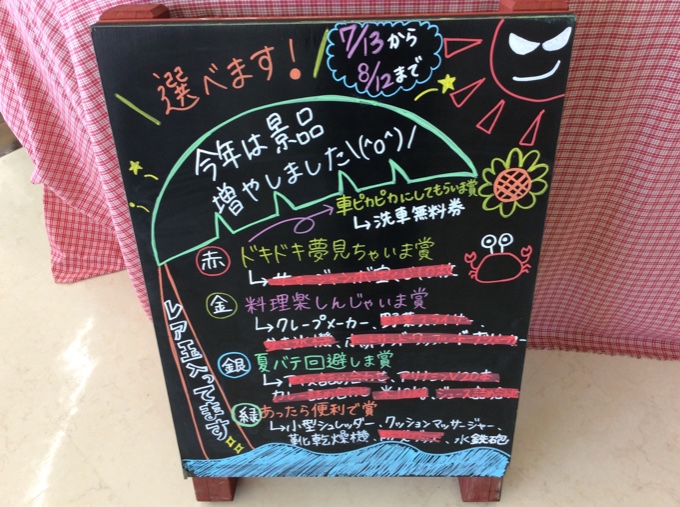 選べます！
7/13から
8/12まで
今年は景品
増やしました\(^o^)/
車ピカピカにしてもらいま賞
↳洗車無料券
赤 ドキドキ夢見ちゃいま賞
金 料理楽しんじゃいま賞
↳クレープメーカー、
銀 夏バテ回避しま賞
緑 あったら便利で賞
↳小型シュレッダー、クッションマッサージャー、
靴乾燥機、水鉄砲
レア玉入ってます